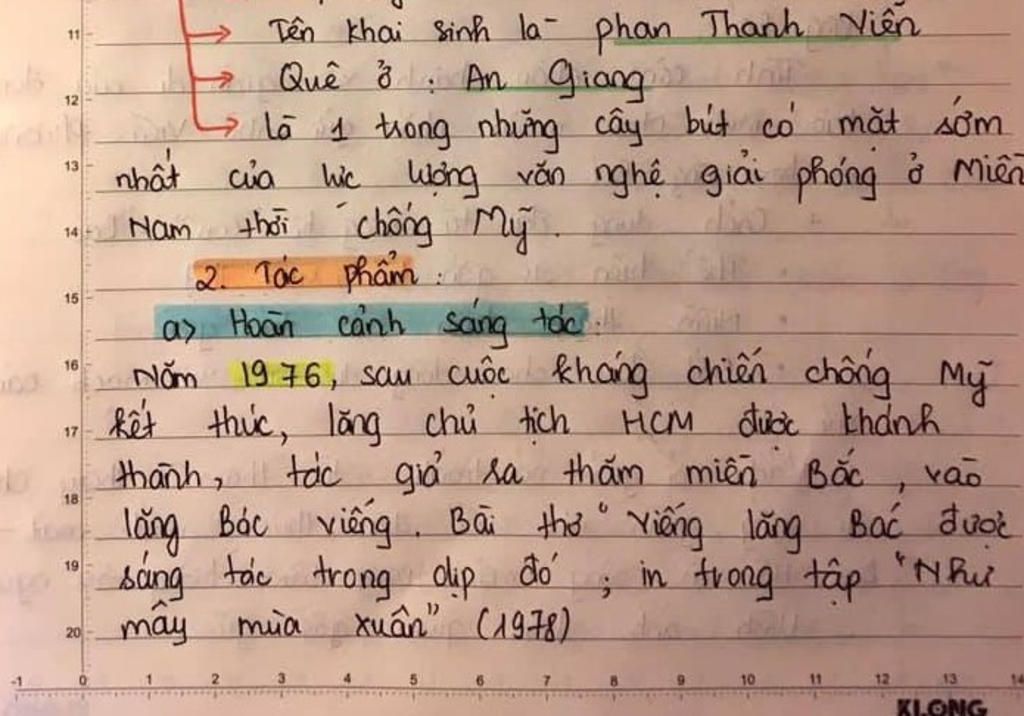 Tên khai sinh là phan Thanh Viễn
Quê ở : An Giang
là 1 trong những cây bút có mặt sớm
nhất của lực lượng văn nghệ giải phóng ở Miền
Nam thời chống Mỹ.
2. Tác phẩm :
a> Hoàn cảnh sáng tác :
Năm 1976, sau cuộc kháng chiến chống Mỹ
kết thúc, lăng chủ tịch HCM được khánh
thành, tác giả ra thăm miền Bắc, vào
lăng Bác viếng. Bài thơ "Viếng lăng Bác được
sáng tác trong dịp đó ; in trong tập "Như
mây mùa xuân" (1978)
KLONG